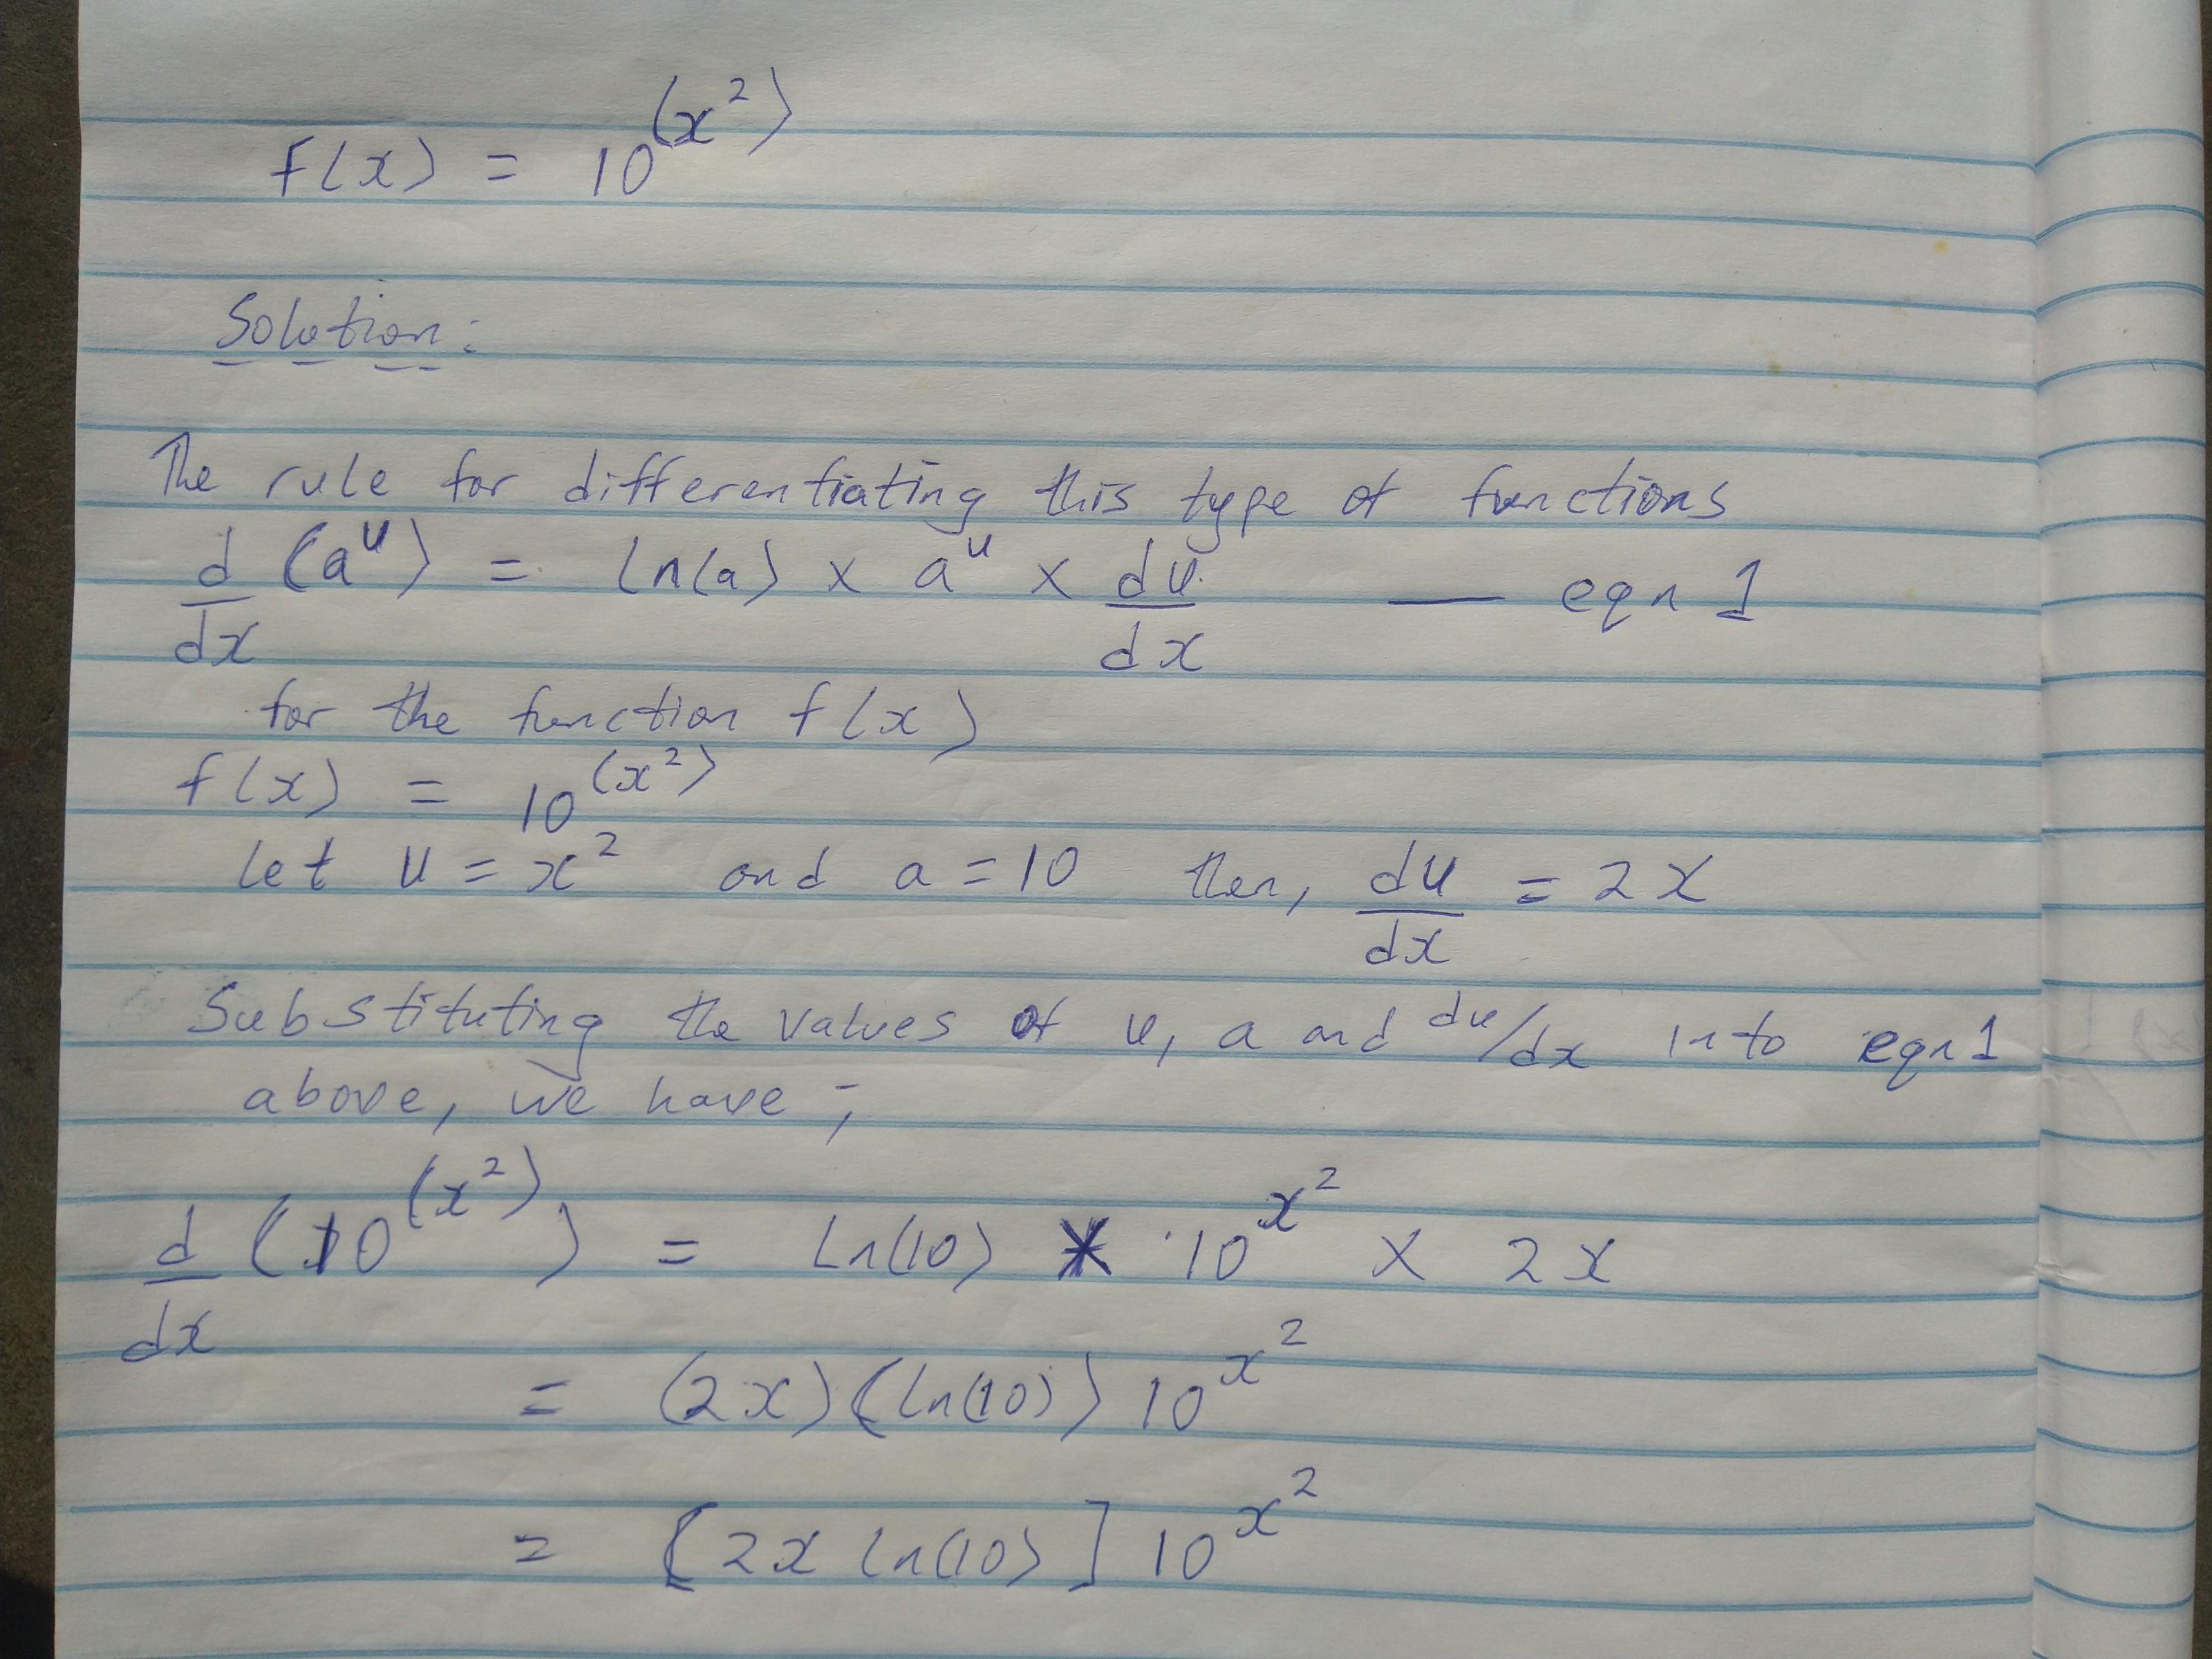 f(x) = 10^(x²)
Solution:
The rule for differentiating this type of functions
d/dx (a^u) = ln(a) × a^u × du/dx — eqn 1
for the function f(x)
f(x) = 10^(x²)
let u = x² and a = 10 then, du/dx = 2x
Substituting the values of u, a and du/dx into eqn 1
above, we have;
d/dx (10^(x²)) = ln(10) × 10^x² × 2x
= (2x)(ln(10)) 10^x²
= [2x ln(10)] 10^x²